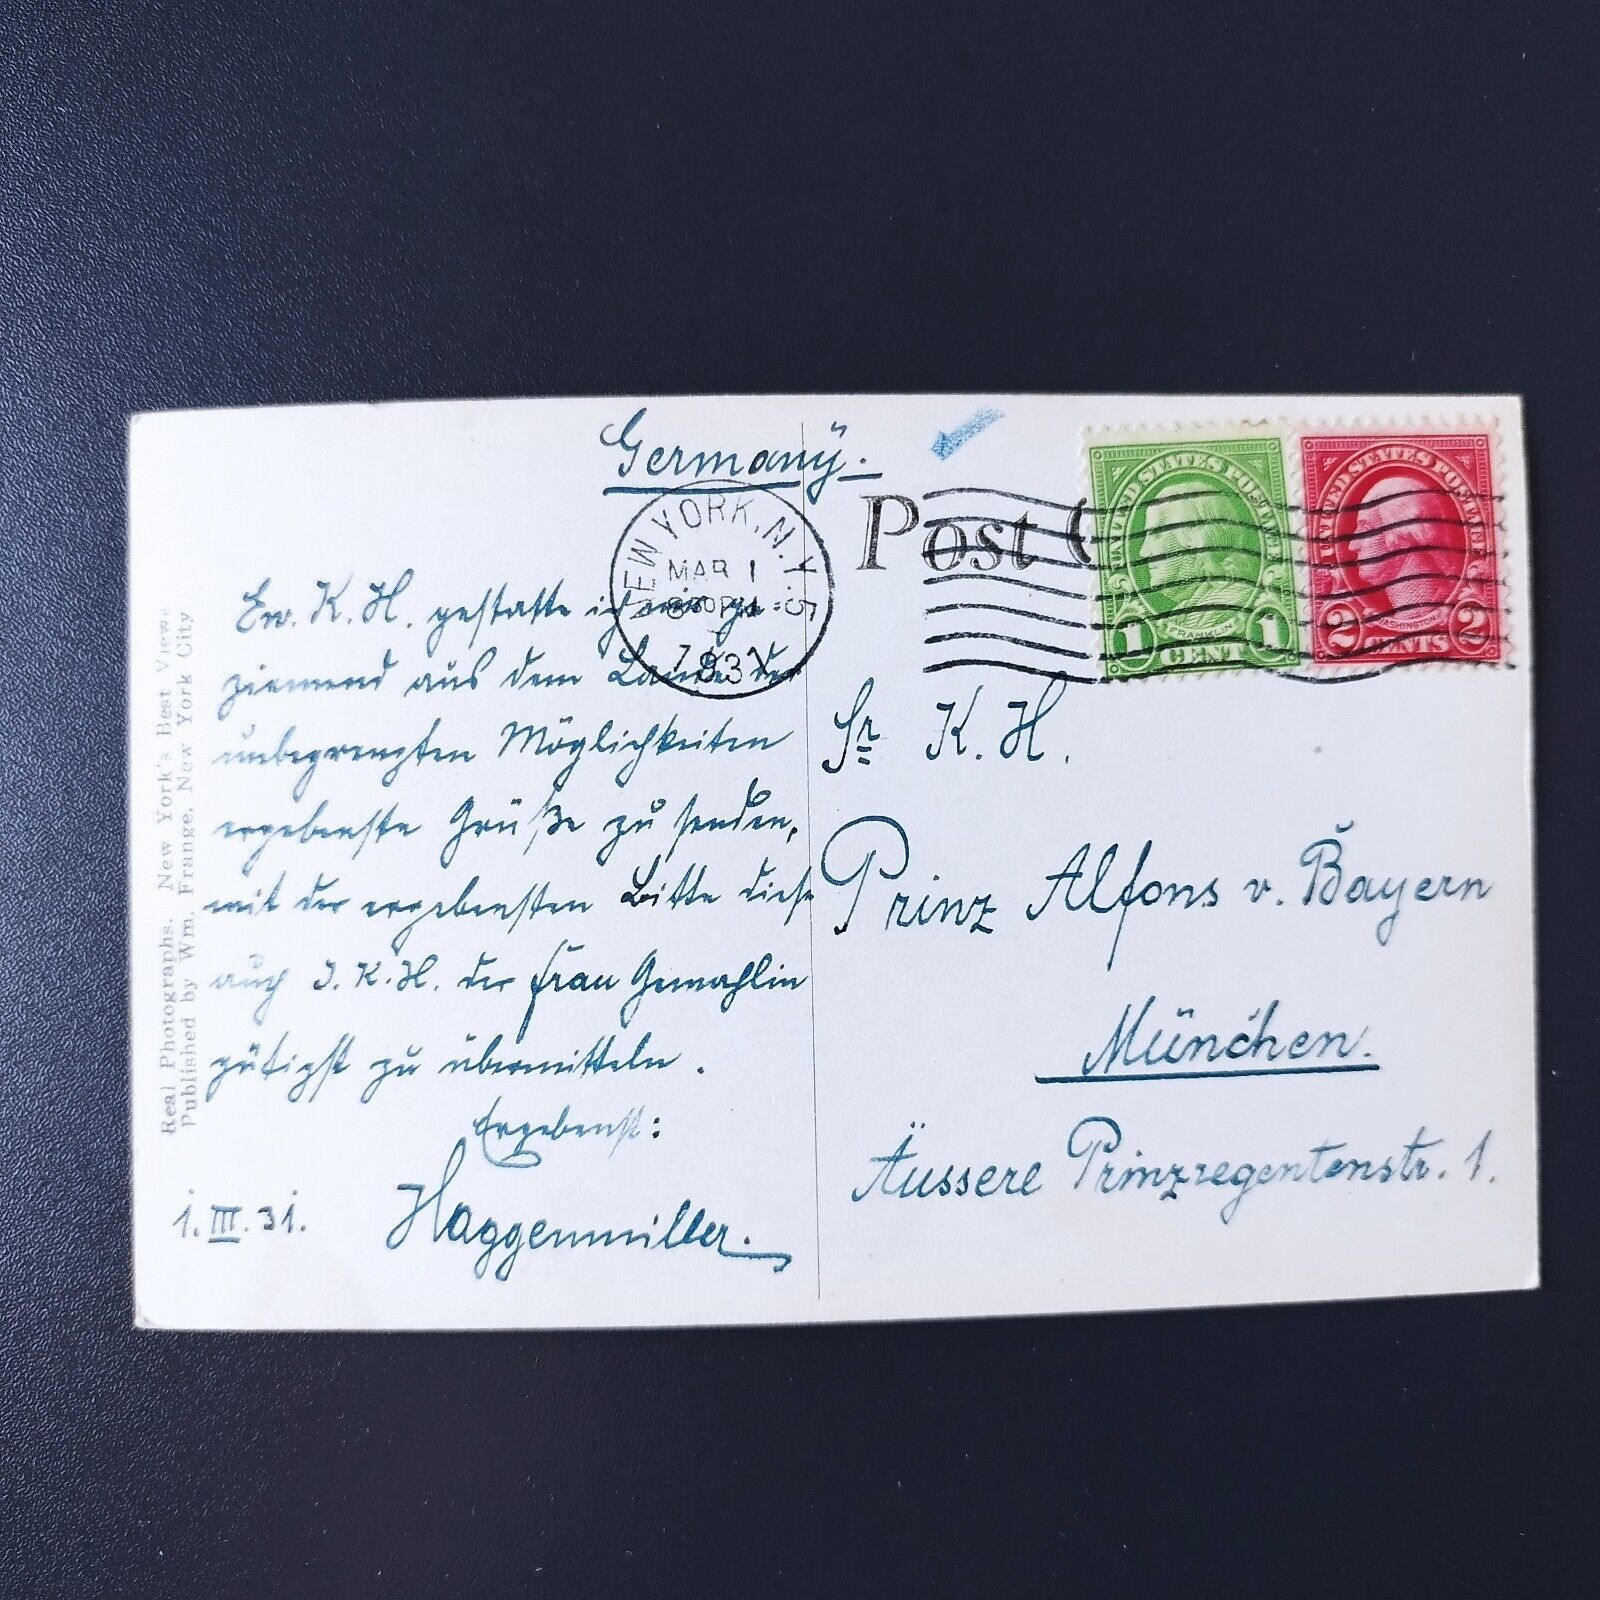 Germany.
Post C
NEW YORK, N.Y.
MAR 1
1931
UNITED STATES POSTAGE
FRANKLIN
1 CENT 1
UNITED STATES POSTAGE
WASHINGTON
2 CENTS 2
Ew. K. H. gestatte ich mir ge=
ziemend aus dem Lande der
unbegrenzten Möglichkeiten
ergebenste Grüße zu senden,
mit der ergebensten Bitte diese
auch I. K. H. der Frau Gemahlin
gütigst zu übermitteln.
Ergebenst:
Haggenmiller.
1. III. 31.
Sr K. H.
Prinz Alfons v. Bayern
München.
Äussere Prinzregentenstr. 1.
Real Photographs. New York's Best Views
Published by Wm. Frange. New York City